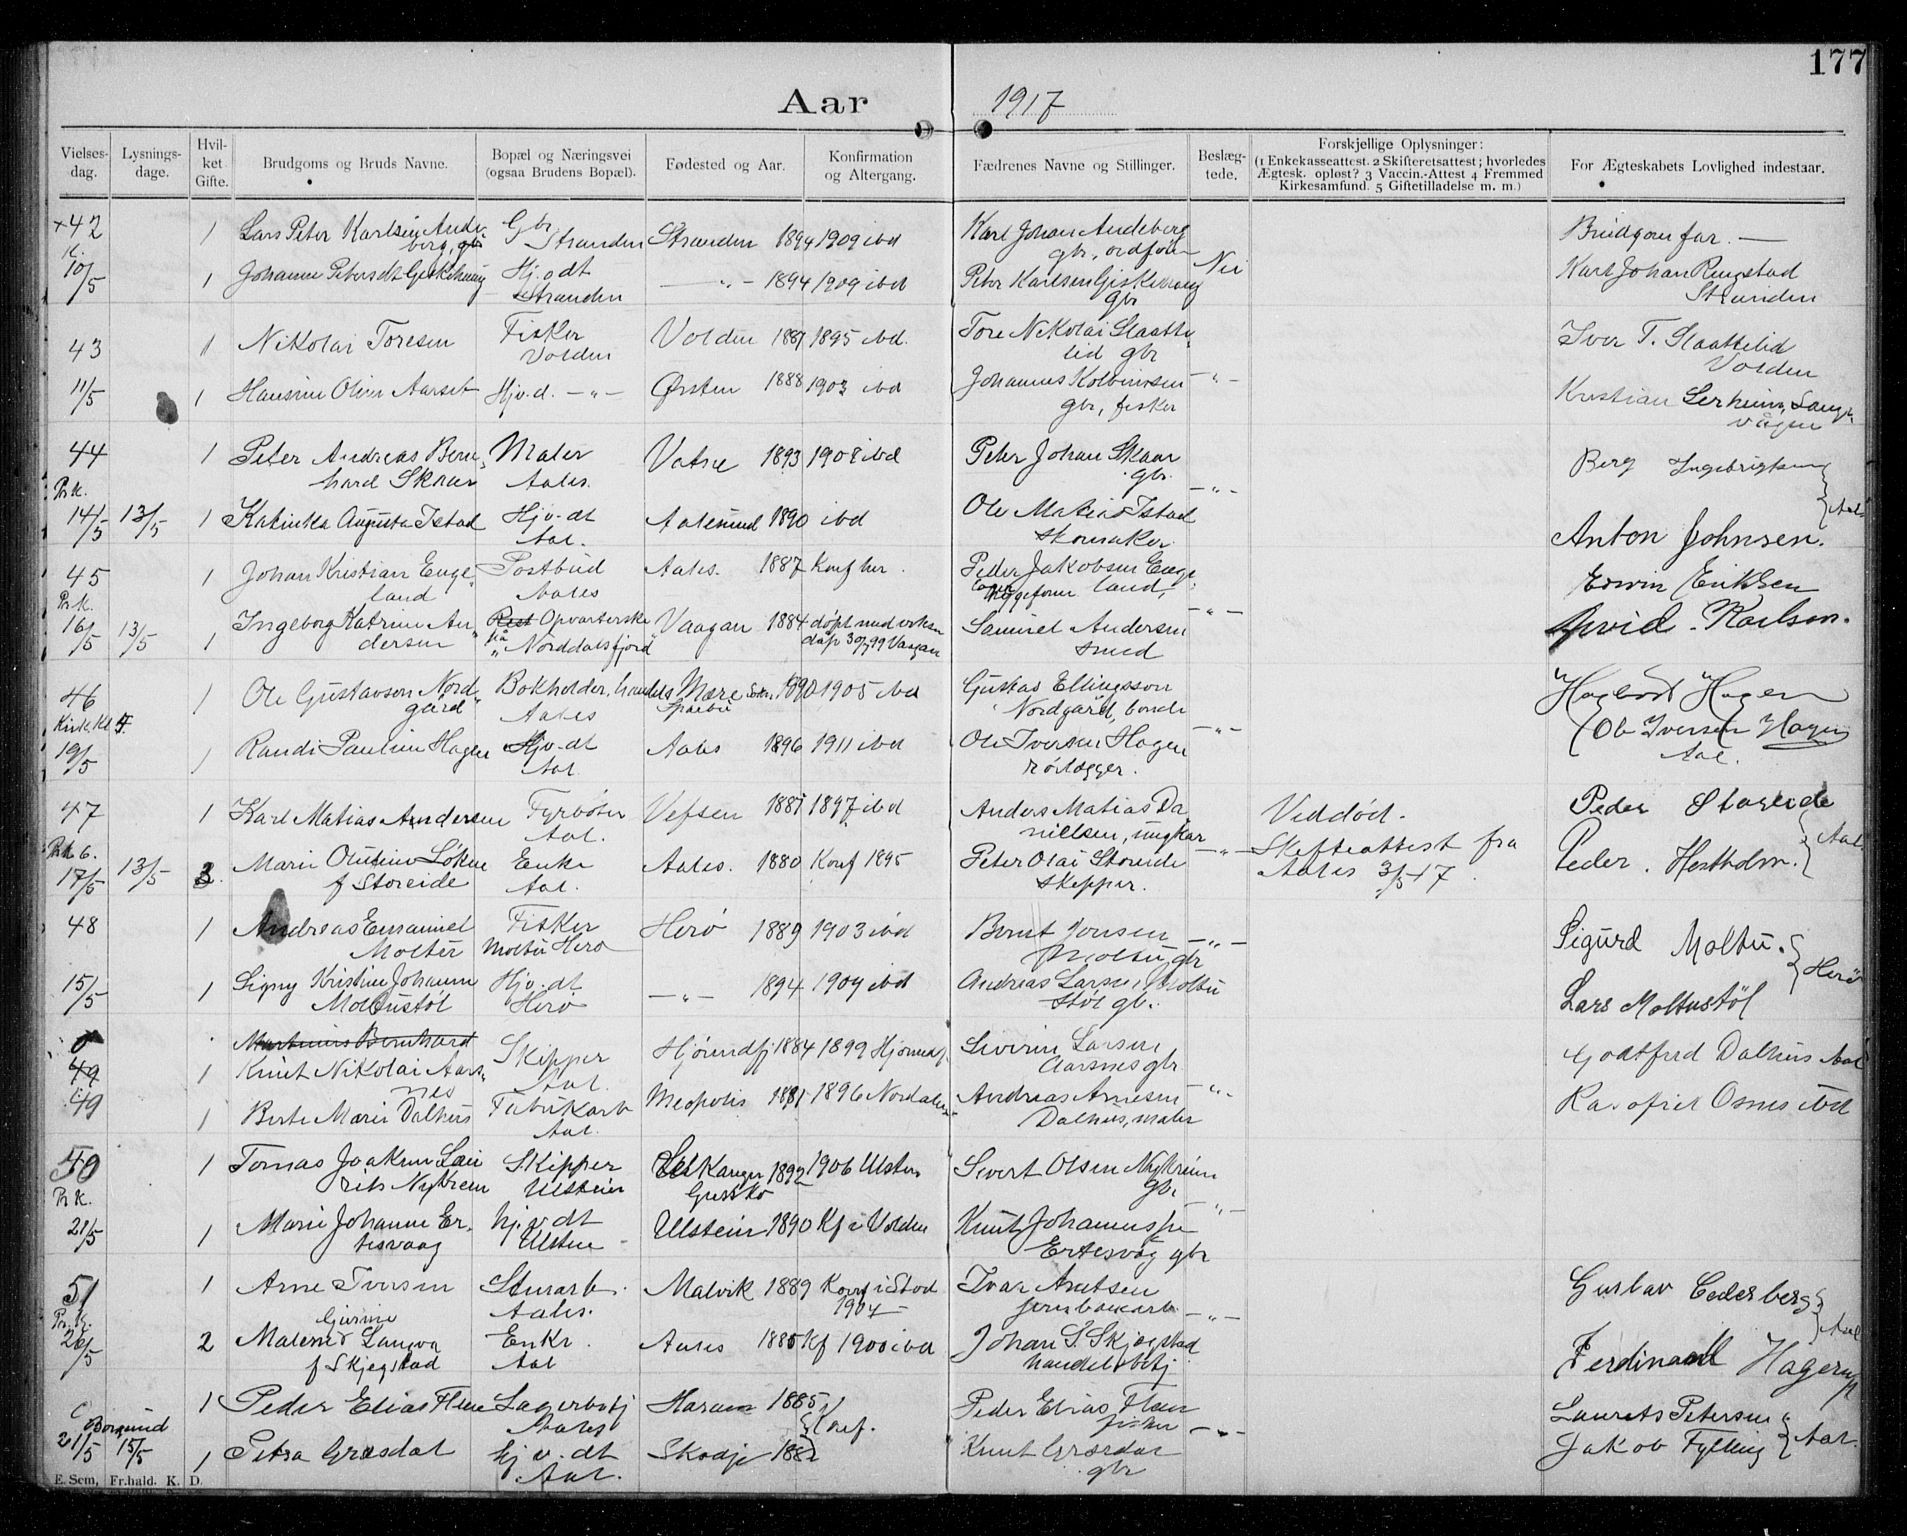 177
Aar 1917
Vielses-dag.
Lysnings-dage.
Hvil-ket Gifte.
Brudgoms og Bruds Navne.
Bopæl og Næringsvei (ogsaa Brudens Bopæl).
Fødested og Aar.
Konfirmation og Altergang.
Fædrenes Navne og Stillinger.
Beslæg-tede.
Forskjellige Oplysninger: (1 Enkekasseattest. 2 Skifteretsattest; hvorledes Ægtesk. opløst? 3 Vaccin.-Attest 4 Fremmed Kirkesamfund. 5 Giftetilladelse m. m.)
For Ægteskabets Lovlighed indestaar.
42 1 Lars Peter Karlsen Ande- Gbr Stranden 1894 1909 ibd Karl Johan Andeberg Brudgom far. —
berg, gbr Stranden gbr, ordfører
10/5 1 Johanne Petersdt Giskehaug Hj.v.dt — „ — 1894 1909 ibd Peter Karlsen Giskehaug Nei Karl Johan Ringstad
Stranden gbr Stranden
43 1 Nikolai Toresen Fisker Volden 1881 1895 ibd. Tore Nikolai Slaatte- Iver T. Slaattelid
Volden lid gbr Volden
11/5 1 Hansine Oline Aarset Hjv.d. — „ — Ørsten 1888 1903 ibd Johannes Kolbeinsen — „ — Kristian
gbr, fisker
44 1 Peter Andreas Bern- Maler Vatne 1893 1908 ibd Peter Johan Skaar Berg Ingebrigtsen
Pr.k. hard Skaar Aales. gbr. — „ —
14/5 13/5 1 Katinka Augusta Istad Hjv.dt Aalesund 1890 ibd Ole Matias Istad Aal
Aal. skomaker. Anton Johnsen.
45 1 Johan Kristian Enge- Postbud Aales. 1887 Konf her. Peder Jakobsen Enge- Erwin Eriksen
Pr.k. land Aales land,
16/5 13/5 1 Ingeborg Katrine An- Opvarterske Vaagan 1884 døpt med voksen Samuel Andersen — „ — Arvid Karlson.
dersen på „Norddalsfjord" dåp 30/7 99 Vaagan smed
46 1 Ole Gustavsen Nord- Bokholder, Mære 1890 1905 ibd Gustav Ellingsson Hagbart Hagen
Kirke Kl 5 gård Aales Sparbu Nordgård, bonde — „ — Ole Iversen Hagen
19/5 1 Randi Pauline Hagen Hjv.dt Aales 1896 1911 ibd Ole Iversen Hagen Aal.
Aal. rørlægger.
47 1 Karl Matias Andersen Fyrbøter Vefsen 1881 1897 ibd Anders Matias Da- Veddød. Peder Storeide
Aal. nielsen, ungkar Aal.
17/5 13/5 3. Marie Olufine Løken Enke Aales. 1880 Konf 1895 Peter Olai Storeide — „ — Skifteattest fra Peder. Hestholm.
f Storeide Aal. skipper. Aales 3/5 17.
48 1 Andreas Emanuel Fisker Herø 1889 1903 ibd Bernt Jonsen — „ — Sigurd Moltu.
Molter Moltu Herø Moltu, gbr Herø
15/5 1 Signy Kristine Johanne Hjv.dt — „ — 1894 1909 ibd Andreas Larsen Moltu
Moltustøl Herø støl gbr. Lars Moltustøl
Martinius Bernhard
49 1 Knut Nikolai Aars- Skipper Hjørundfj 1884 1899 Hjørundfj. Severin Larsen Godtfred Dalhus Aal
nes Aal. Aarsnes gbr
49 1 Berte Marie Dalhus Fabrikarb Meopolis 1881 1896 Nordalen Andreas Arnesen — „ — Osnes ibd
Aal. Dalhus, maler
50 1 Tomas Joakim Lau- Skipper 1892 1906 Ulsten Sivert Olsen Nykreim
Pr.k. rits Nykrem Ulstein gbr — „ —
21/5 1 Marie Johanne Er- hj.v.dt Ulstein 1890 Kf i Volden Knut Johannessen
tesvaag Ulsten Ertesvåg gbr
51 1 Arne Iversen Aales. Malvik 1889 Konf i Stod Ivar Arntsen Gustav Cederberg
Pr.k. 1904 — „ —
26/5 2 Malene Gurine Langva Enke. Aales 1885 Kf 1900 ibd Johan S. Skjegstad Aal
f Skjegstad Aal handelsbetj Ferdinand Hagerup
1 Peder Elias Flem Lagerbetj Haram 1885 Peder Elias Flem Laurits Petersen
Borgund Aales Konf. fisker — „ — Aal.
21/5 15/5 1 Petra Grasdal hj.v.dt Skodje 1882 Knut Grasdal Jakob Fylling
Aal. gbr
E. Sem, Fr.hald. K. D.